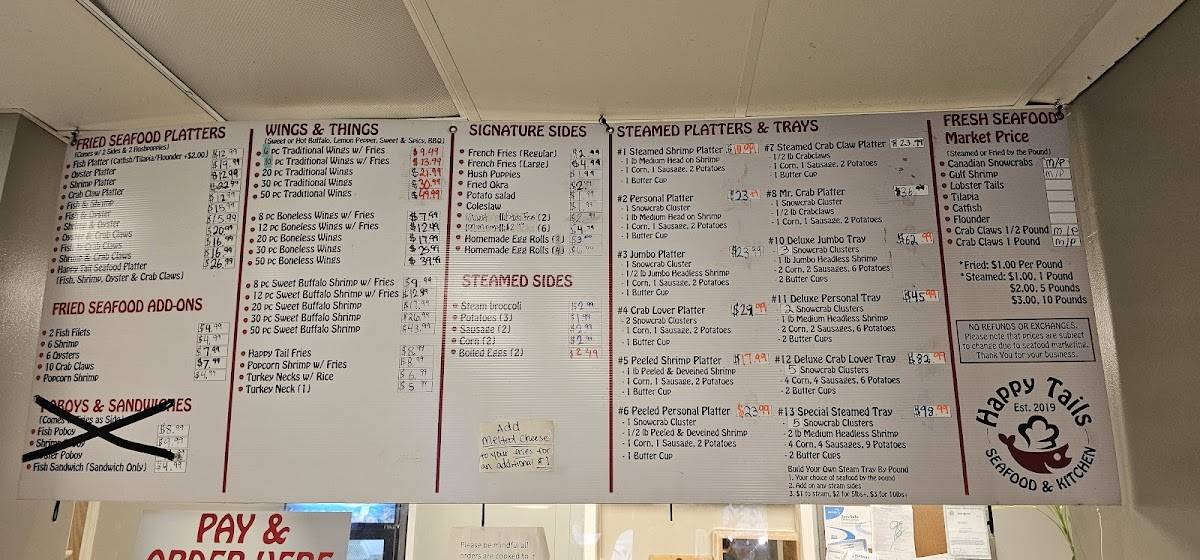 FRIED SEAFOOD PLATTERS
(Comes w/ 2 Sides & 2 Hushpuppies)
Fish Platter (Catfish/Tilapia/Flounder +$2.00) $12.99
Oyster Platter $19.99
Shrimp Platter $12.99
Crab Claw Platter $22.99
Fish & Shrimp
Fish & Oyster
Shrimp & Oyster
Oyster & Crab Claws $20.99
Fish & Crab Claws $16.99
Shrimp & Crab Claws $16.99
Happy Tail Seafood Platter $26.99
(Fish, Shrimp, Oyster & Crab Claws)
FRIED SEAFOOD ADD-ONS
2 Fish Filets $4.99
6 Shrimp $4.99
6 Oysters $7.99
10 Crab Claws $7.99
Popcorn Shrimp $4.99
POBOYS & SANDWICHES
(Comes w/ Fries as Side)
Fish Poboy $8.99
Shrimp Poboy $9.99
Oyster Poboy
Fish Sandwich (Sandwich Only) $4.99
WINGS & THINGS
(Sweet or Hot Buffalo, Lemon Pepper, Sweet & Spicy, BBQ)
6 pc Traditional Wings w/ Fries $9.49
10 pc Traditional Wings w/ Fries $13.99
20 pc Traditional Wings $21.99
30 pc Traditional Wings $30.99
50 pc Traditional Wings $49.99
8 pc Boneless Wings w/ Fries $7.99
12 pc Boneless Wings w/ Fries $12.49
20 pc Boneless Wings $17.99
30 pc Boneless Wings $25.99
50 pc Boneless Wings $39.99
8 pc Sweet Buffalo Shrimp w/ Fries $9.99
12 pc Sweet Buffalo Shrimp w/ Fries $12.99
20 pc Sweet Buffalo Shrimp $17.99
30 pc Sweet Buffalo Shrimp $26.99
50 pc Sweet Buffalo Shrimp $43.99
Happy Tail Fries $8.99
Popcorn Shrimp w/ Fries $8.99
Turkey Necks w/ Rice $6.99
Turkey Neck (1) $5.99
SIGNATURE SIDES
French Fries (Regular) $2.99
French Fries (Large) $4.99
Hush Puppies $1.99
Fried Okra $2.99
Potato salad
Coleslaw
(2)
(6) $4.99
Homemade Egg Rolls (2) $3.00
Homemade Egg Rolls (4) $6.
STEAMED SIDES
Steam broccoli $2.99
Potatoes (3) $1.99
Sausage (2) $2.99
Corn (2) $2.99
Boiled Eggs (2) $2.49
Add
Melted Cheese
to your fries for
an additional $1
STEAMED PLATTERS & TRAYS
#1 Steamed Shrimp Platter $19.99
- 1 lb Medium Head on Shrimp
- 1 Corn, 1 Sausage, 2 Potatoes
- 1 Butter Cup
#2 Personal Platter $23.99
- 1 Snowcrab Cluster
- 1 lb Medium Head on Shrimp
- 1 Corn, 1 Sausage, 2 Potatoes
- 1 Butter Cup
#3 Jumbo Platter $23.99
- 1 Snowcrab Cluster
- 1/2 lb Jumbo Headless Shrimp
- 1 Corn, 1 Sausage, 2 Potatoes
- 1 Butter Cup
#4 Crab Lover Platter $29.99
- 2 Snowcrab Clusters
- 1 Corn, 1 Sausage, 2 Potatoes
- 1 Butter Cup
#5 Peeled Shrimp Platter $17.99
- 1 lb Peeled & Deveined Shrimp
- 1 Corn, 1 Sausage, 2 Potatoes
- 1 Butter Cup
#6 Peeled Personal Platter $23.99
- 1 Snowcrab Cluster
- 1/2 lb Peeled & Deveined Shrimp
- 1 Corn, 1 Sausage, 2 Potatoes
- 1 Butter Cup
#7 Steamed Crab Claw Platter $23.99
- 1/2 lb Crabclaws
- 1 Corn, 1 Sausage, 2 Potatoes
- 1 Butter Cup
#8 Mr. Crab Platter
- 1 Snowcrab Cluster
- 1/2 lb Crabclaws
- 1 Corn, 1 Sausage, 2 Potatoes
#10 Deluxe Jumbo Tray $62.99
- 3 Snowcrab Clusters
- 1 lb Jumbo Headless Shrimp
- 2 Corn, 2 Sausages, 6 Potatoes
- 2 Butter Cups
#11 Deluxe Personal Tray $45.99
- 2 Snowcrab Clusters
- 1 lb Medium Headless Shrimp
- 2 Corn, 2 Sausages, 6 Potatoes
- 2 Butter Cups
#12 Deluxe Crab Lover Tray $82.99
- 5 Snowcrab Clusters
- 4 Corn, 4 Sausages, 6 Potatoes
- 2 Butter Cups
#13 Special Steamed Tray $98.99
- 5 Snowcrab Clusters
- 2 lb Medium Headless Shrimp
- 4 Corn, 4 Sausages, 9 Potatoes
- 2 Butter Cups
Build Your Own Steam Tray By Pound
1. Your choice of seafood by the pound
2. Add on any steam sides
3. $1 to steam, $2 for 5lbs+, $3 for 10lbs+
FRESH SEAFOOD
Market Price
(Steamed or Fried by the Pound)
Canadian Snowcrabs m/p
Gulf Shrimp m/p
Lobster Tails
Tilapia
Catfish
Flounder
Crab Claws 1/2 Pound m/p
Crab Claws 1 Pound m/p
*Fried: $1.00 Per Pound
*Steamed: $1.00, 1 Pound
$2.00, 5 Pounds
$3.00, 10 Pounds
NO REFUNDS OR EXCHANGES.
Please note that prices are subject
to change due to seafood marketing.
Thank You for your business.
Happy Tails
Est. 2019
SEAFOOD & KITCHEN
PAY &
ORDER HERE
Please be mindful all
orders are cooked to